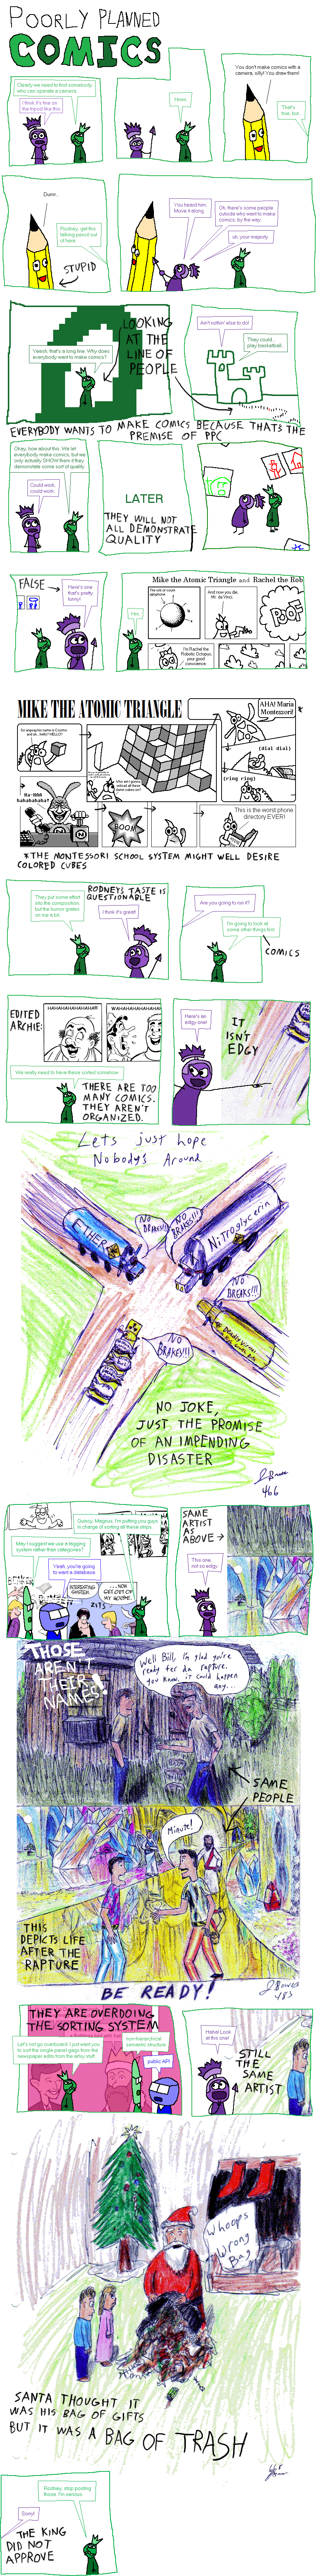 POORLY PLANNED
COMICS
Clearly we need to find somebody
who can operate a camera.
I think it's fine on
the tripod like this.
Hmm.
You don't make comics with a
camera, silly! You draw them!
That's
true, but...
Durrr...
Rodney, get this
talking pencil out
of here.
STUPID
You heard him.
Move it along.
Oh, there's some people
outside who want to make
comics, by the way,
uh, your majesty.
Yeesh, that's a long line. Why does
everybody want to make comics?
LOOKING
AT THE
LINE OF
PEOPLE
Ain't nothin' else to do!
They could...
play basketball...
EVERYBODY WANTS TO MAKE COMICS BECAUSE THATS THE
PREMISE OF PPC
Okay, how about this: We let
everybody make comics, but we
only actually SHOW them if they
demonstrate some sort of quality.
Could work,
could work.
LATER
THEY WILL NOT
ALL DEMONSTRATE
QUALITY
FALSE
Here's one
that's pretty
funny!
Mike the Atomic Triangle and Rachel the Rob
Hm.
And now you die,
Mr. da Vinci.
POOT
I'm Rachel the
Robotic Octopus,
your good
conscience.
MIKE THE ATOMIC TRIANGLE
AHA! Maria
Montessori!
*
(dial dial)
(ring ring)
Ha-HAA
hahahahaha!
BOOM
This is the worst phone
directory EVER!
*THE MONTESSORI SCHOOL SYSTEM MIGHT WELL DESIRE
COLORED CUBES
They put some effort
into the composition,
but the humor grates
on me a bit.
RODNEY'S TASTE IS
QUESTIONABLE
I think it's great!
Are you going to run it?
I'm going to look at
some other things first.
COMICS
EDITED
ARCHIE:
We really need to have these sorted somehow.
THERE ARE TOO
MANY COMICS.
THEY AREN'T
ORGANIZED.
Here's an
edgy one!
IT
ISN'T
EDGY
Lets just hope
Nobody's Around
ETHER
NO
BRAKES!!!
NO
BRAKES!!!
Nitroglycerin
NO
BREAKS!!!
NO
BRAKES!!!
NO JOKE,
JUST THE PROMISE
OF AN IMPENDING
DISASTER
466
Quincy, Magnus, I'm putting you guys
in charge of sorting all these strips.
May I suggest we use a tagging
system rather than categories?
Yeah, you're going
to want a database.
INTERESTING
SYSTEM.
...NOW
GET OUT OF
MY HOUSE.
SAME
ARTIST
AS
ABOVE
This one,
not so edgy.
THOSE
AREN'T
THEIR
NAMES
Well Bill, I'm glad you're
ready fer da rapture.
you know, it could happen
any...
SAME
PEOPLE
Minute!
THIS
DEPICTS LIFE
AFTER THE
RAPTURE
BE READY!
483
THEY ARE OVERDOING
THE SORTING SYSTEM
Let's not go overboard. I just want you
to sort the single panel gags from the
newspaper edits from the artsy stuff.
non-hierarchical
semantic structure
public API
Haha! Look
at this one!
STILL
THE
SAME
ARTIST
Whoops
Wrong
Bag
SANTA THOUGHT IT
WAS HIS BAG OF GIFTS
BUT IT WAS A BAG OF TRASH
Rodney, stop posting
those. I'm serious.
Sorry!
THE KING
DID NOT
APPROVE